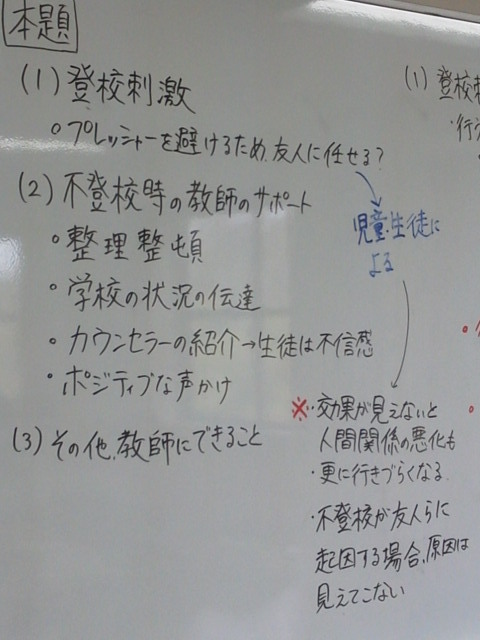 本題
(1) 登校刺激
○プレッシャーを避けるため、友人に任せる?
(2) 不登校時の教師のサポート
・整理整頓
・学校の状況の伝達
・カウンセラーの紹介→生徒は不信感
・ポジティブな声かけ
(3) その他、教師にできること
児童・生徒に
よる
※・効果が見えないと
人間関係の悪化も
・更に行きづらくなる
・不登校が友人らに
起因する場合、原因は
見えてこない
(1) 登校刺
・行